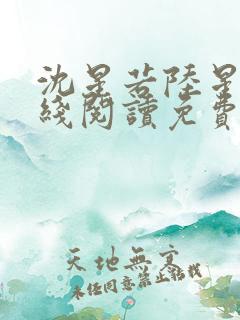 沈星若陸星
綫閱讀免費
天地無寬
未經同意禁止轉載